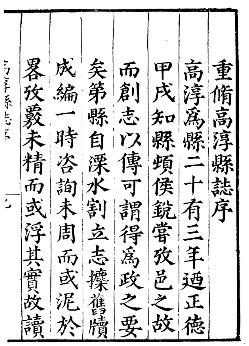 重脩高淳縣誌序
高淳爲縣二十有三年迺正德
甲戌知縣頓侯銳嘗攷邑之故
而創志以傳可謂得爲政之要
矣第縣自溧水割立志攟舊牘
成編一時咨詢未周而或泥於
畧攷覈未精而或浮其實故讀
高淳縣誌序